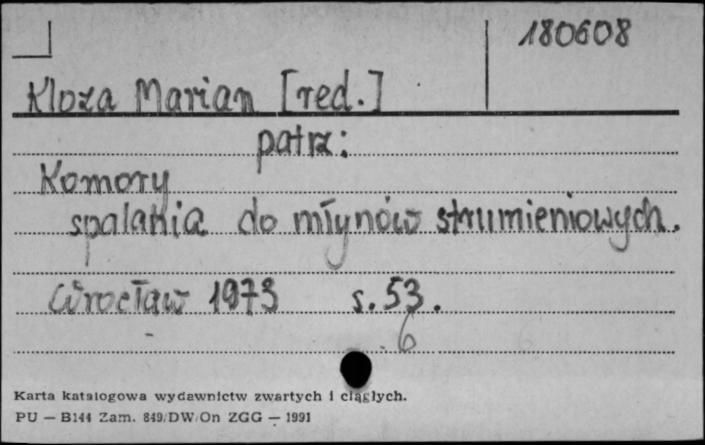 180608
Kloza Marian [red.]
patrz:
Komory
spalania do młynów strumieniowych.
Wrocław 1973 s. 53.
6
Karta katalogowa wydawnictw zwartych i ciągłych.
PU — B144 Zam. 849/DW/On ZGG — 1991